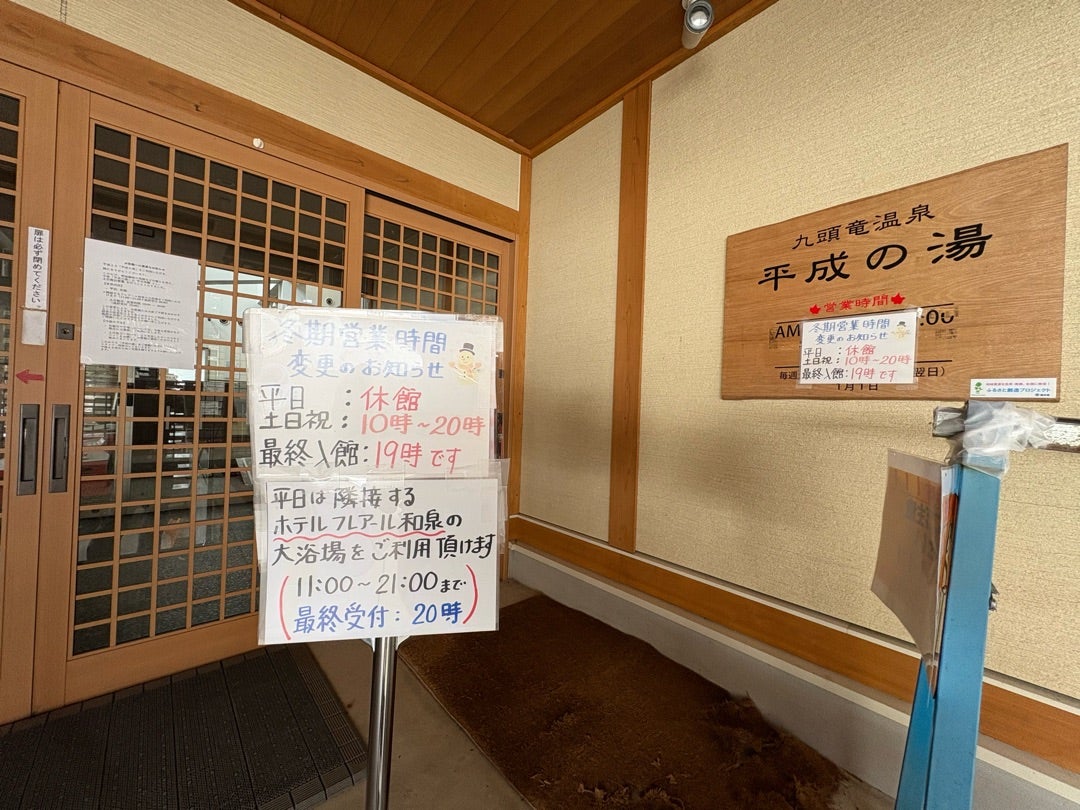 扉は必ず閉めてください。
冬期営業時間
変更のお知らせ
平日　：休館
土日祝：10時～20時
最終入館：19時です
平日は隣接する
ホテルフレアール和泉の
大浴場をご利用頂けます
(11:00～21:00まで
最終受付：20時)
九頭竜温泉
平成の湯
営業時間
AM
:00
冬期営業時間
変更のお知らせ
平日：休館
土日祝：10時～20時
最終入館：19時です
毎週
翌日)
1月1日
ふるさと創造プロジェクト